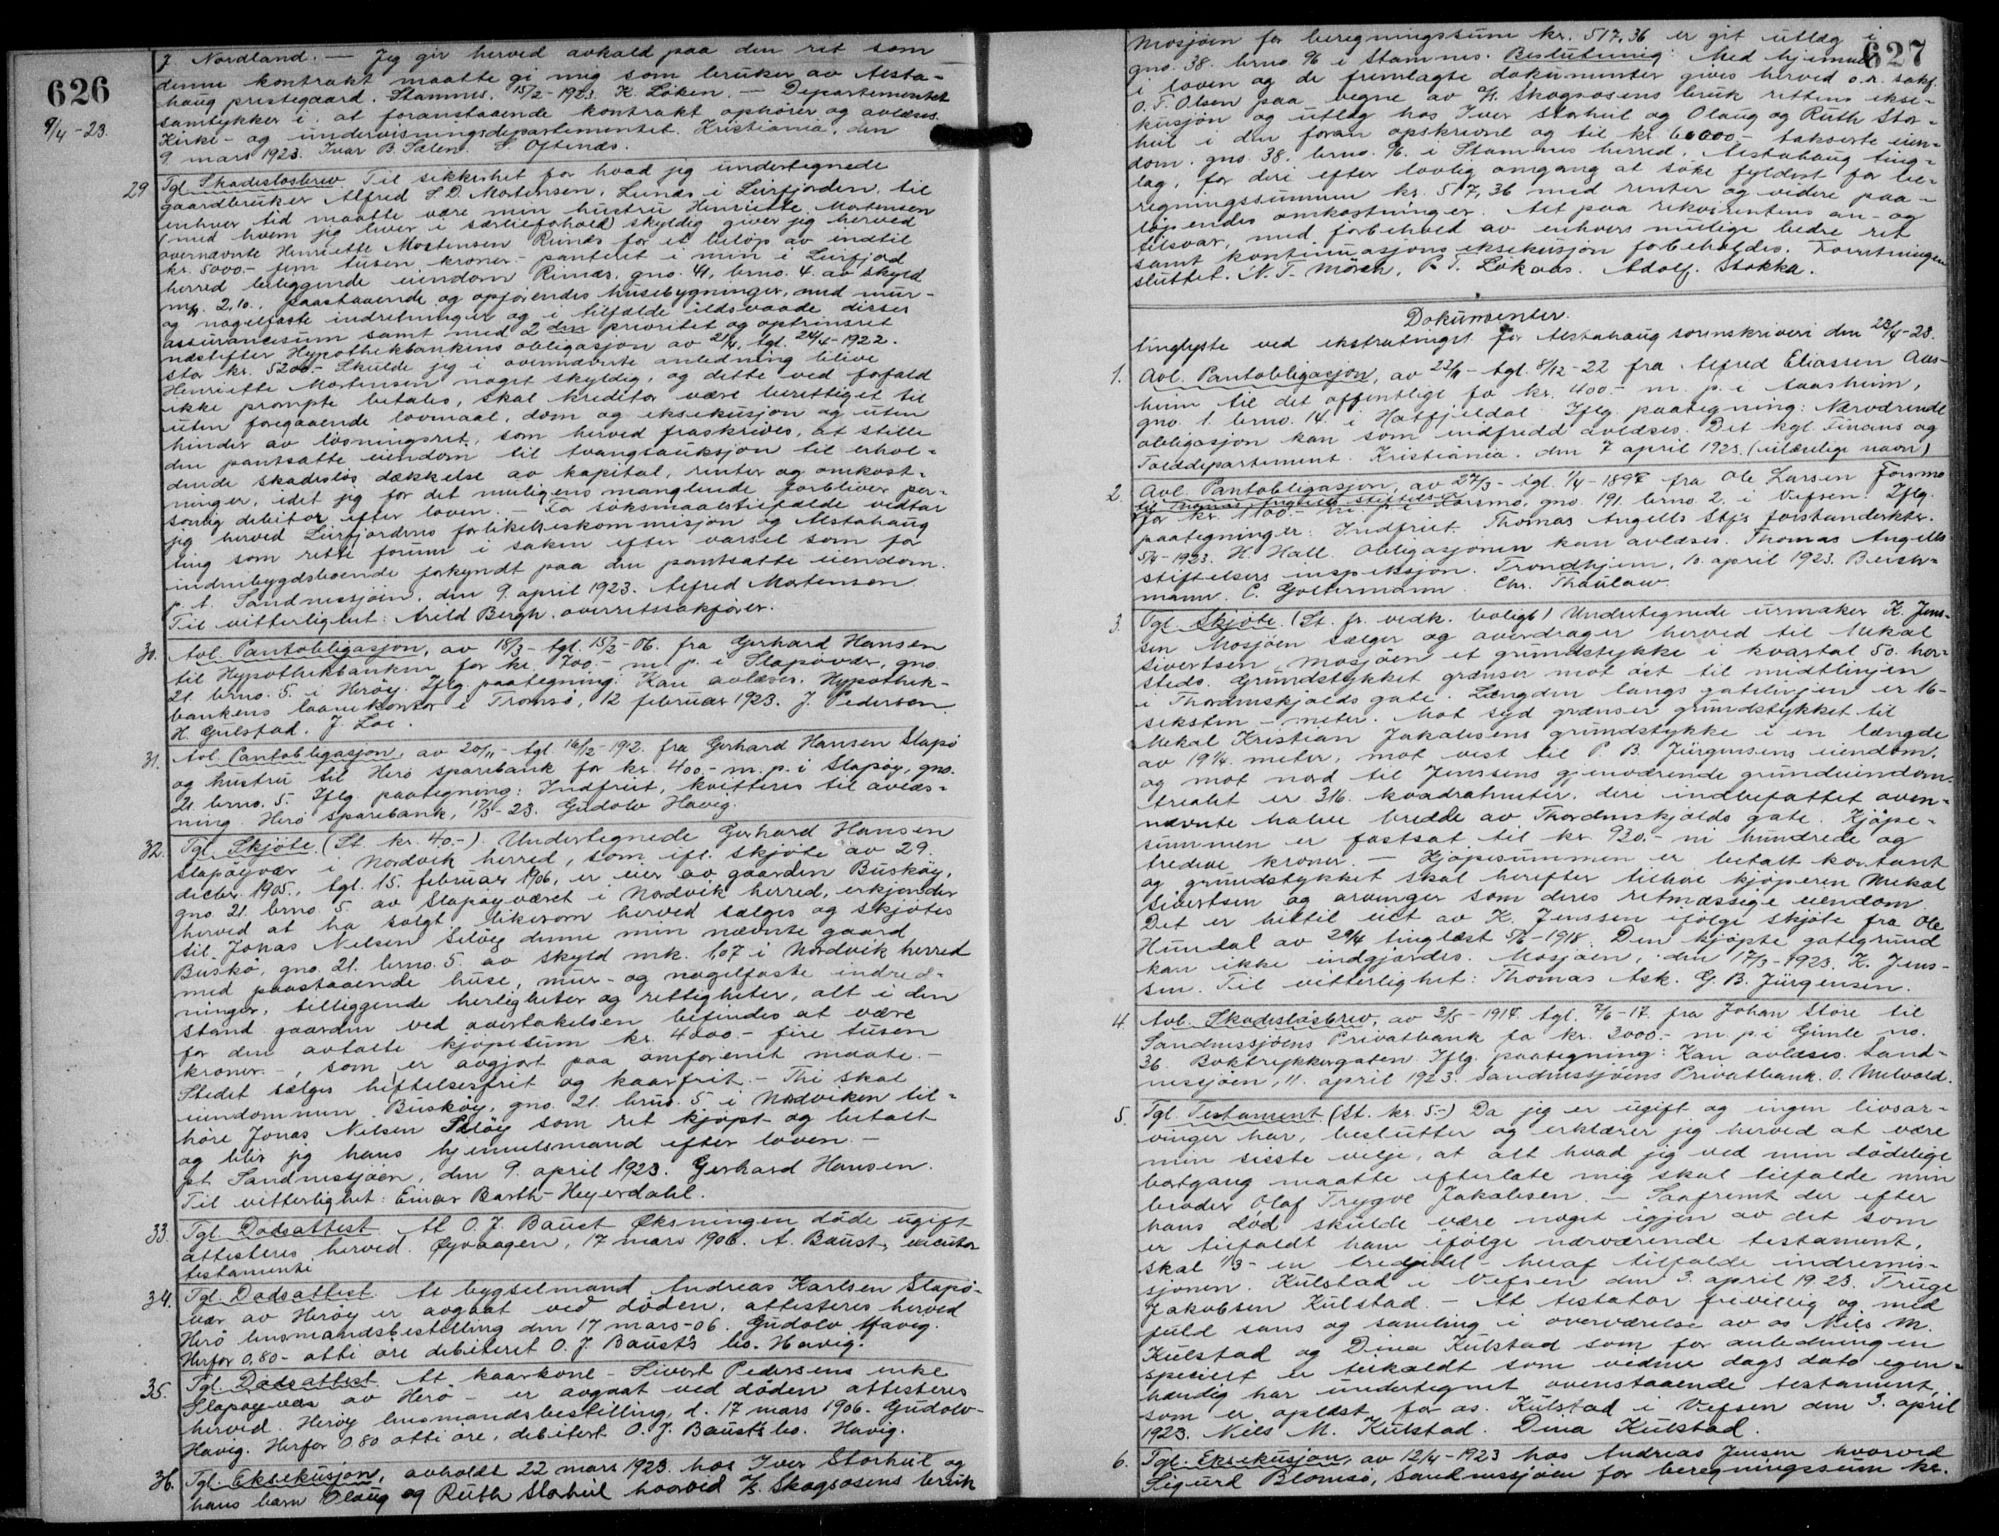 626
9/4-23.
J. Nordland. — Jeg gir herved avkald paa den ret som
denne kontrakt maatte gi mig som bruker av Alsta-
haug prestegaard. Stamnes. 15/2-1923. K. Løken. — Departementet
samtykker i at foranstaaende kontrakt ophører og avlæses.
Kirke- og undervisningsdepartementet. Kristiania, den
9 mars 1923. Ivar B. Sælen. S. Oftenæs.
29. Tgl. Skadesløsbrev. Til sikkerhet for hvad jeg undertegnede
gaardbruker Alfred S. D. Mortensen, Lunds i Leirfjorden, til
enhver tid maatte være min hustru Henriette Mortensen
(med hvem jeg lever i særeieforhold) skyldig giver jeg herved
overnævnte Henriette Mortensen Runds for et beløp av indtil
kr. 5000.- fem tusen kroner - pantelet i min i Leirfjord
herred beliggende eiendom Rinæs, gno. 41, brno. 4. av skyld
mk. 2,10. paastaaende og opførendes husebygninger, med mur-
og nagelfaste indretninger og i tilfælde ildsvaade disses
assurancesum samt med 2den prioritet og optrinsret
næstefter Hypothekbankens obligasjon av 21/4, tgl. 24/4-1922.
stor kr. 5200.- Skulde jeg i ovennævnte anledning blive
Henriette Mortensen noget skyldig, og dette ved forfald
ikke prompte betales, skal kreditor være berettiget til
uten foregaaende lovmaal, dom og eksekusjon og uten
hinder av løsningsret, som herved fraskrives, at stille
den pantsatte eiendom til tvangsauksjon til erhol-
dende skadesløs dækkelse av kapital, renter og omkost-
ninger, idet jeg for det muligens manglende forbliver per-
sonlig debitor efter loven. — Ta søksmaalstilfælde vedtar
jeg herved Leirfjordens forlikelseskommisjon og Alstahaug
ting som rette forum i saken efter varsel som for
indenbygdsboende forkyndt paa den pantsatte eiendom.
p.t. Sandnessjøen, den 9. april 1923. Alfred Mortensen.
Til vitterlighet: Arild Bergh. overretssakfører.
30. Avl. Pantobligasjon, av 18/3- tgl. 15/2-06. fra Gerhard Hansen
til Hypothekbanken for kr. 700.- m. p. i Slapøvær, gno.
21. brno. 5. i Herøy. Iflg. paategning: Kan avlæses. Hypothek-
bankens laanekontor i Tromsø, 12 februar 1923. J. Pedersen.
H. Gulstad. J. Loe.
31. Avl. Pantobligasjon, av 20/11- tgl. 16/12-1912. fra Gerhard Hansen Slapø
og hustru til Herø sparebank for kr. 400.- m. p. i Slapøy, gno.
21. brno. 5. Iflg. paategning: Indfriet, kvitteres til avlæs-
ning. Herø Sparebank, 17/3-23. Gudolv Havig.
32. Tgl. Skjøte. (St. kr. 40.-) Undertegnede Gerhard Hansen
Slapøyvær i Nordvik herred, som ifl. skjøte av 29.
decbr. 1905, tgl. 15. februar 1906, er eier av gaarden Buskøy,
gno 21. brno. 5. av Slapøyværet i Nordvik herred, erkjender
herved at ha solgt likesom herved sælges og skjøtes
til Jonas Nelsen Seløy denne min nævnte gaard
Buskø, gno. 21. brno. 5. av skyld mk. 1.07 i Nordvik herred
med paastaaende huse, mur- og nagelfaste indred-
ninger, tilliggende herligheter og rettigheter, alt i den
stand gaarden ved overtakelsen befindes at være
for den avtalte kjøpesum kr. 4000.- fire tusen
kroner-, som er avgjort paa omforenet maate. —
Stedet sælges heftelsesfrit og kaarfrit. — Thi skal
eiendommen Buskøy, gno. 21. brno. 5 i Nordviken til-
høre Jonas Nelsen Seløy som ret kjøpt og betalt
og blir jeg hans hjemmelsmand efter loven. —
pt. Sandnessjøen, den 9. april 1923. Gerhard Hansen.
Til vitterlighet: Einar Barth-Heyerdahl.
33. Tgl. Dødsattest. At O. J. Baust Øksningen døde ugift
attesteres herved. Øyvaagen, 17 mars 1906. A. Baust, executor
testamenti
34. Tgl. Dødsattest. At bygselmand Andreas Karlsen Slapø-
vær av Herøy er avgaat ved døden, attesteres herved
Herø lensmandsbestilling den 17 mars-06. Gudolv Havig.
Herfor 0,80- otti øre debiteret O. J. Baust's bo. Havig.
35. Tgl. Dødsattest. At kaarkone - Sivert Pedersens enke
Slapøyvær av Herø - er avgaat ved døden attesteres
herved. Herøy lensmandsbestilling, d. 17 mars 1906. Gudolv
Havig. Herfor 0.80 otti øre, debitert O. J. Baust's bo. Havig.
36. Tgl. Eksekusjon, avholdt 22 mars 1923. hos Iver Storhul og
hans barn Olaug og Ruth Storhul hvorved A/S. Skogsosens bruk
627
Mosjøen for beregningssum kr. 517,36 er git utlæg i
gno. 38. brno. 9/6 i Stamnes. Beslutning: Med hjemmel
i loven og de fremlagte dokumenter gives herved o.r. sakf.
O. T. Olsen paa vegne av A/S. Skogsosens bruk rettens ekse-
kusjon og utlæg hos Iver Storhul og Olaug og Ruth Stor-
hul i den foran opskrevne og til kr. 60000.- takserte eien-
dom. gno. 38. brno. 9/6. i Stamnes herred, Alstahaug ting-
lag, for deri efter lovlig omgang at søke fyldest for be-
regningssummen kr. 517,36 med renter og videre paa-
løpendes omkostninger. Alt paa rekvirentens an- og
tilsvar, med forbehold av enhvers mulige bedre ret
samt kontinuasjons eksekusjon forbeholdes. Forretningen
sluttet. N. T. Mørch, P. T. Løkaas. Adolf. Stokka.
Dokumenter.
tinglyste ved ekstratinget for Alstahaug sorenskriveri den 23/4-23.
1. Avl. Pantobligasjon, av 22/11- tgl. 8/12-22 fra Alfred Eliassen Aas-
heim til det offentlige for kr. 400.- m. p. i Aasheim,
gno 1. brno. 14. i Hatfjeldal. Iflg. paategning: Nærværende
obligasjon kan som indfridd avlæses. Det kgl. Finans og
Tolddepartement. Kristiania. den 7 april 1923. (ulæselige navn)
2. Avl. Pantobligasjon, av 27/3- tgl. 1/4-1897 fra Ole Larsen Forsmo
til Thomas Angells stiftelser
for kr. 1100.- m. p. i Forsmo, gno 191. brno 2. i Vefsen. Iflg.
paategninger: Indfriet. Thomas Angells Stf's forstanderktr.
5/4-1923. H. Hall. Obligasjonen kan avlæses. Thomas Angells
stiftelsers inspeksjon. Trondhjem, 10. april 1923. Bersh-
mann. C. Goltermann. Chr. Thaulow.
3. Tgl. Skjøte. (St. fr. vedk. boligt) Undertegnede urmaker K. Jens-
sen Mosjøen sælger og overdrager herved til Mekal
Sivertsen, Mosjøen et grundstykke i kvartal 50. her-
steds. Grundstykket grænser mot øst til midtlinjen
i Thordenskjolds gate. Længden langs gatelinjen er 16-
seksten - meter. Mot syd grænser grundstykket til
Mekal Kristian Jakobsens grundstykke i en længde
av 19 1/4. meter, mot vest til P. B. Jürgensens eiendom,
og mot nord til Jenssens gjenværende grundeiendom.
Arealet er 316. kvadratmeter. deri indbefattet oven-
nævnte halve bredde av Thordenskjolds gate. Kjøpe-
summen er fastsat til kr. 930.- ni hundrede og
tredive kroner. — Kjøpesummen er betalt kontant
og grundstykket skal herefter tilhøre kjøperen Mekal
Sivertsen og arvinger som deres retmæssige eiendom.
Det er hittil eiet av K. Jenssen ifølge skjøte fra Ole
Hundal av 29/4 tinglæst 5/6-1918. Den kjøpte gategrund
kan ikke indgjærdes. Mosjøen, den 17/3-1923. K. Jens-
sen. Til vitterlighet: Thomas Ask. G. B. Jürgensen.
4 Avl. Skadesløsbrev, av 3/5-1917. tgl. 7/6-17. fra Johan Støre til
Sandnessjøens Privatbank for kr. 2000.- m. p. i Gimle no.
36. Boktrykkergaten. Iflg. paategning: Kan avlæses. Sand-
nessjøen, 11. april 1923. Sandnessjøens Privatbank. O. Melvold.
5. Tgl. Testament (St. kr. 5.-) Da jeg er ugift og ingen livsar-
vinger har, beslutter og erklærer jeg herved at være
min sisste vilje, at alt hvad jeg ved min dødelige
bortgang maatte efterlate mig skal tilfalde min
broder Olaf Trygve Jakobsen. — Saafremt der efter
hans død skulde være noget igjen av det som
er tilfaldt ham ifølge nærværende testament,
skal 1/3 - en tredjedel - herav tilfalde indremis-
sjonen. Kulstad i Vefsen den 3. april 1923. Truge
Jakobsen Kulstad. — At testator frivillig og med
fuld sans og samling i overværelse av os Niels M.
Kulstad og Dina Kulstad som for anledningen
spesielt er tilkaldt som vedne dags dato egen-
hændig har undertegnet ovenstaaende testament,
som er oplæst for os. Kulstad i Vefsen den 3. april
1923. Niels M. Kulstad. Dina Kulstad.
6. Tgl. Eksekusjon, av 12/4-1923 hos Andreas Jensen hvorved
Sigurd Blomsø, Sandnessjøen for beregningssum kr.